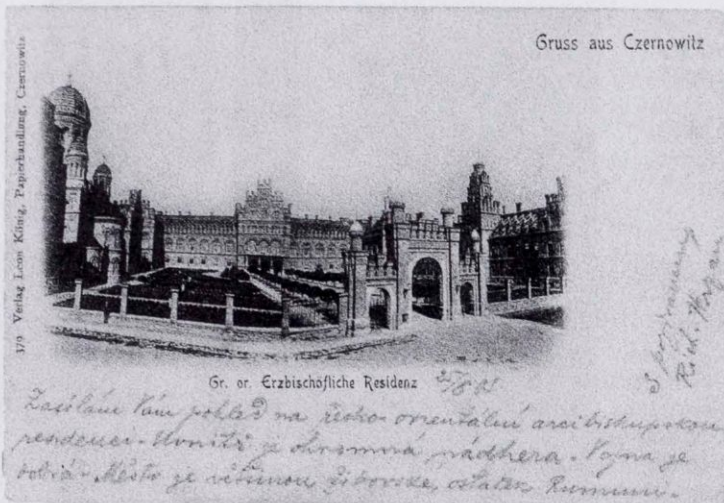 Gruss aus Czernowitz
170 Verlag Leon König, Papierhandlung, Czernowitz
Gr. or. Erzbischöfliche Residenz
Zasílám Vám pohled na řecko-orientální arcibiskupskou
residenci. Uvnitř je ohromná nádhera. Vojna je
dobrá. Město je většinou židovské, ostatek Rumuni.
S pozdravem
Rich.